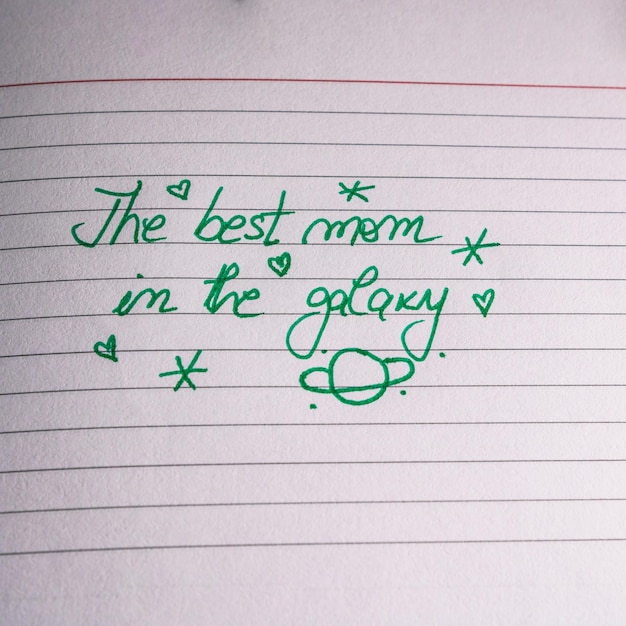 The best mom
in the galaxy